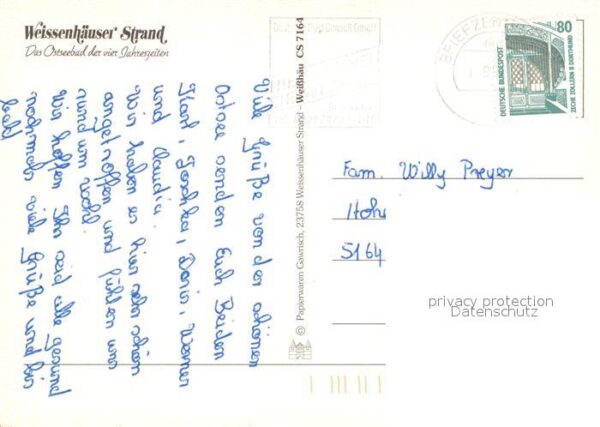 Weissenhäuser Strand
Das Ostseebad der vier Jahreszeiten
Viele Grüße von der schönen
Ostsee senden Euch Beiden
Kurt, Doris, Werner
und Claudia.
Wir haben es hier sehr schön
angetroffen und fühlen uns
rund um wohl.
Wir hoffen Ihr seid alle gesund
nochmals viele Grüße und bis
bald
© Papierwaren Gawrisch, 23758 Weissenhäuser Strand - Weißhäu CS 7164
BRIEFZE
80
DEUTSCHE BUNDESPOST
ZECHE ZOLLERN II DORTMUND
Fam. Willy Preyer
Hohe
5164
privacy protection
Datenschutz